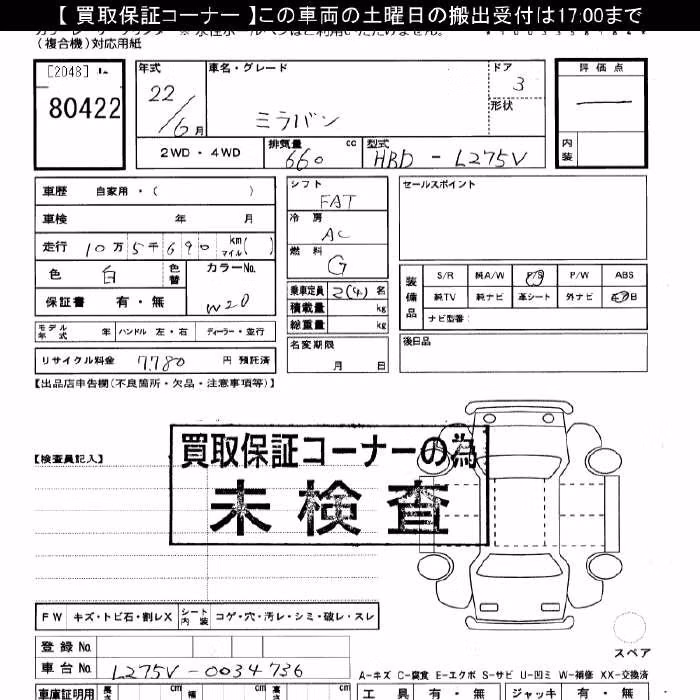 【 買取保証コーナー 】この車両の土曜日の搬出受付は17:00まで
(複合機)対応用紙
[2048]
80422
年式
22/6月
車名・グレード
ミラバン
ドア
3
形状
評価点
—
内装
2WD・4WD
排気量
660
cc
型式
HBD - L275V
車歴 自家用・( )
車検 年 月
走行 10万5千690 km マイル( )
色 白 色替
カラーNo.
W20
保証書 有・無
シフト
FAT
冷房
AC
燃料
G
乗車定員 2(4) 名
積載量 kg
総重量 kg
セールスポイント
装備品
S/R 純A/W P/S P/W ABS
純TV 純ナビ 革シート 外ナビ
ナビ型番:
モデル年式 年 ハンドル 左・右 ディーラー・並行
名変期限
月 日
後日品
リサイクル料金 7780 円 預託済
【出品店申告欄(不良箇所・欠品・注意事項等)】
【検査員記入】
買取保証コーナーの為
未検査
FW キズ・トビ石・割レX シート内装 コゲ・穴・汚レ・シミ・破レ・スレ
スペア
登録No.
車台No. L275V-0034736
A-キズ C-腐食 E-エクボ S-サビ U-凹ミ W-補修 XX-交換済
車庫証明用 長さ cm 幅 cm 高さ cm
工具 有・無 ジャッキ 有・無